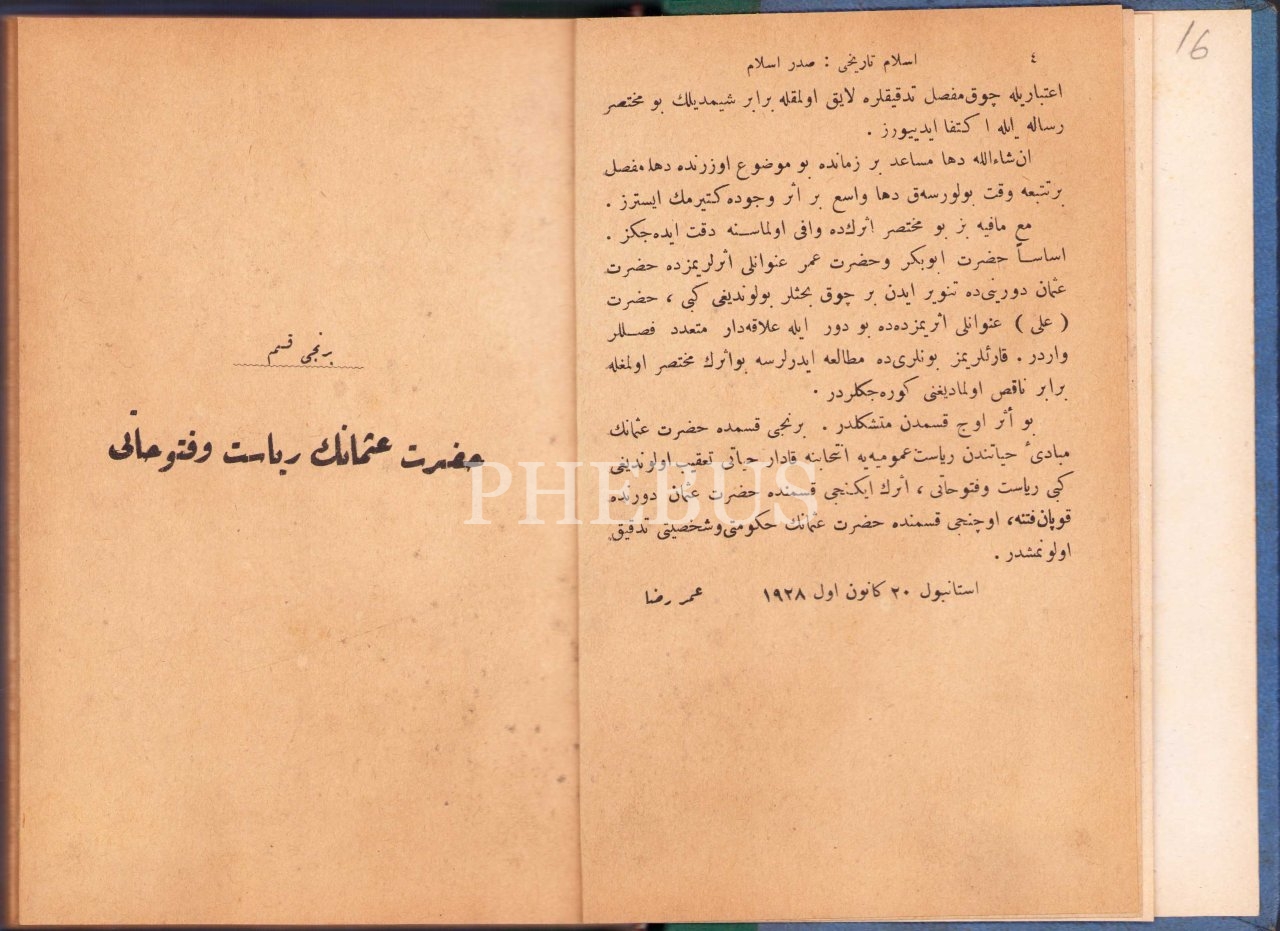 16
٤
اسلام تاریخی : صدر اسلام
اعتباریله چوق مفصل تدقیقلره لایق اولمقله برابر شیمدیلك بو مختصر
رساله ایله ا کتفا ایدییورز .
ان شاءالله دها مساعد بر زمانده بو موضوع اوزرنده دها مفصل
برتتبعه وقت بولورسه‌ق دها واسع بر اثر وجوده کتیرمك ایسترز .
مع مافیه بز بو مختصر اثرك‌ده وافی اولماسـنه دقت ایده‌جکز .
اساسـاً حضرت ابوبکر وحضرت عمر عنوانلی اثرلریمزده حضرت
عثمان دورینی‌ده تنویر ایدن بر چوق بحثلر بولوندیغی کبی ، حضرت
( علی ) عنوانلی اثریمزده‌ده بو دور ایله علاقه‌دار متعدد فصـللر
واردر . قارئلریمز بونلری‌ده مطالعه ایدرلرسه بواثرك مختصر اولمغله
برابر ناقص اولمادیغنی کوره‌جکلردر .
بو أثر اوچ قسمدن متشکلدر . برنجی قسمده حضرت عثمانك
مبادیٔ حیاتندن ریاست عمومیه‌یه انتخابنه قادار حیاتی تعقیب اولوندیغی
کبی ریاست وفتوحاتی ، أثرك ایکنجی قسمنده حضرت عثمان دورنده
قوپان فتنه، اوچنجی قسمنده حضرت عثمانك حکومتی وشخصیتی تدقیق
اولونمشدر .
استانبول ٢٠ کانون اول ١٩٢٨ عمر رضا
برنجی قسم
حضرت عثمانك ریاست وفتوحاتی
PHEBUS